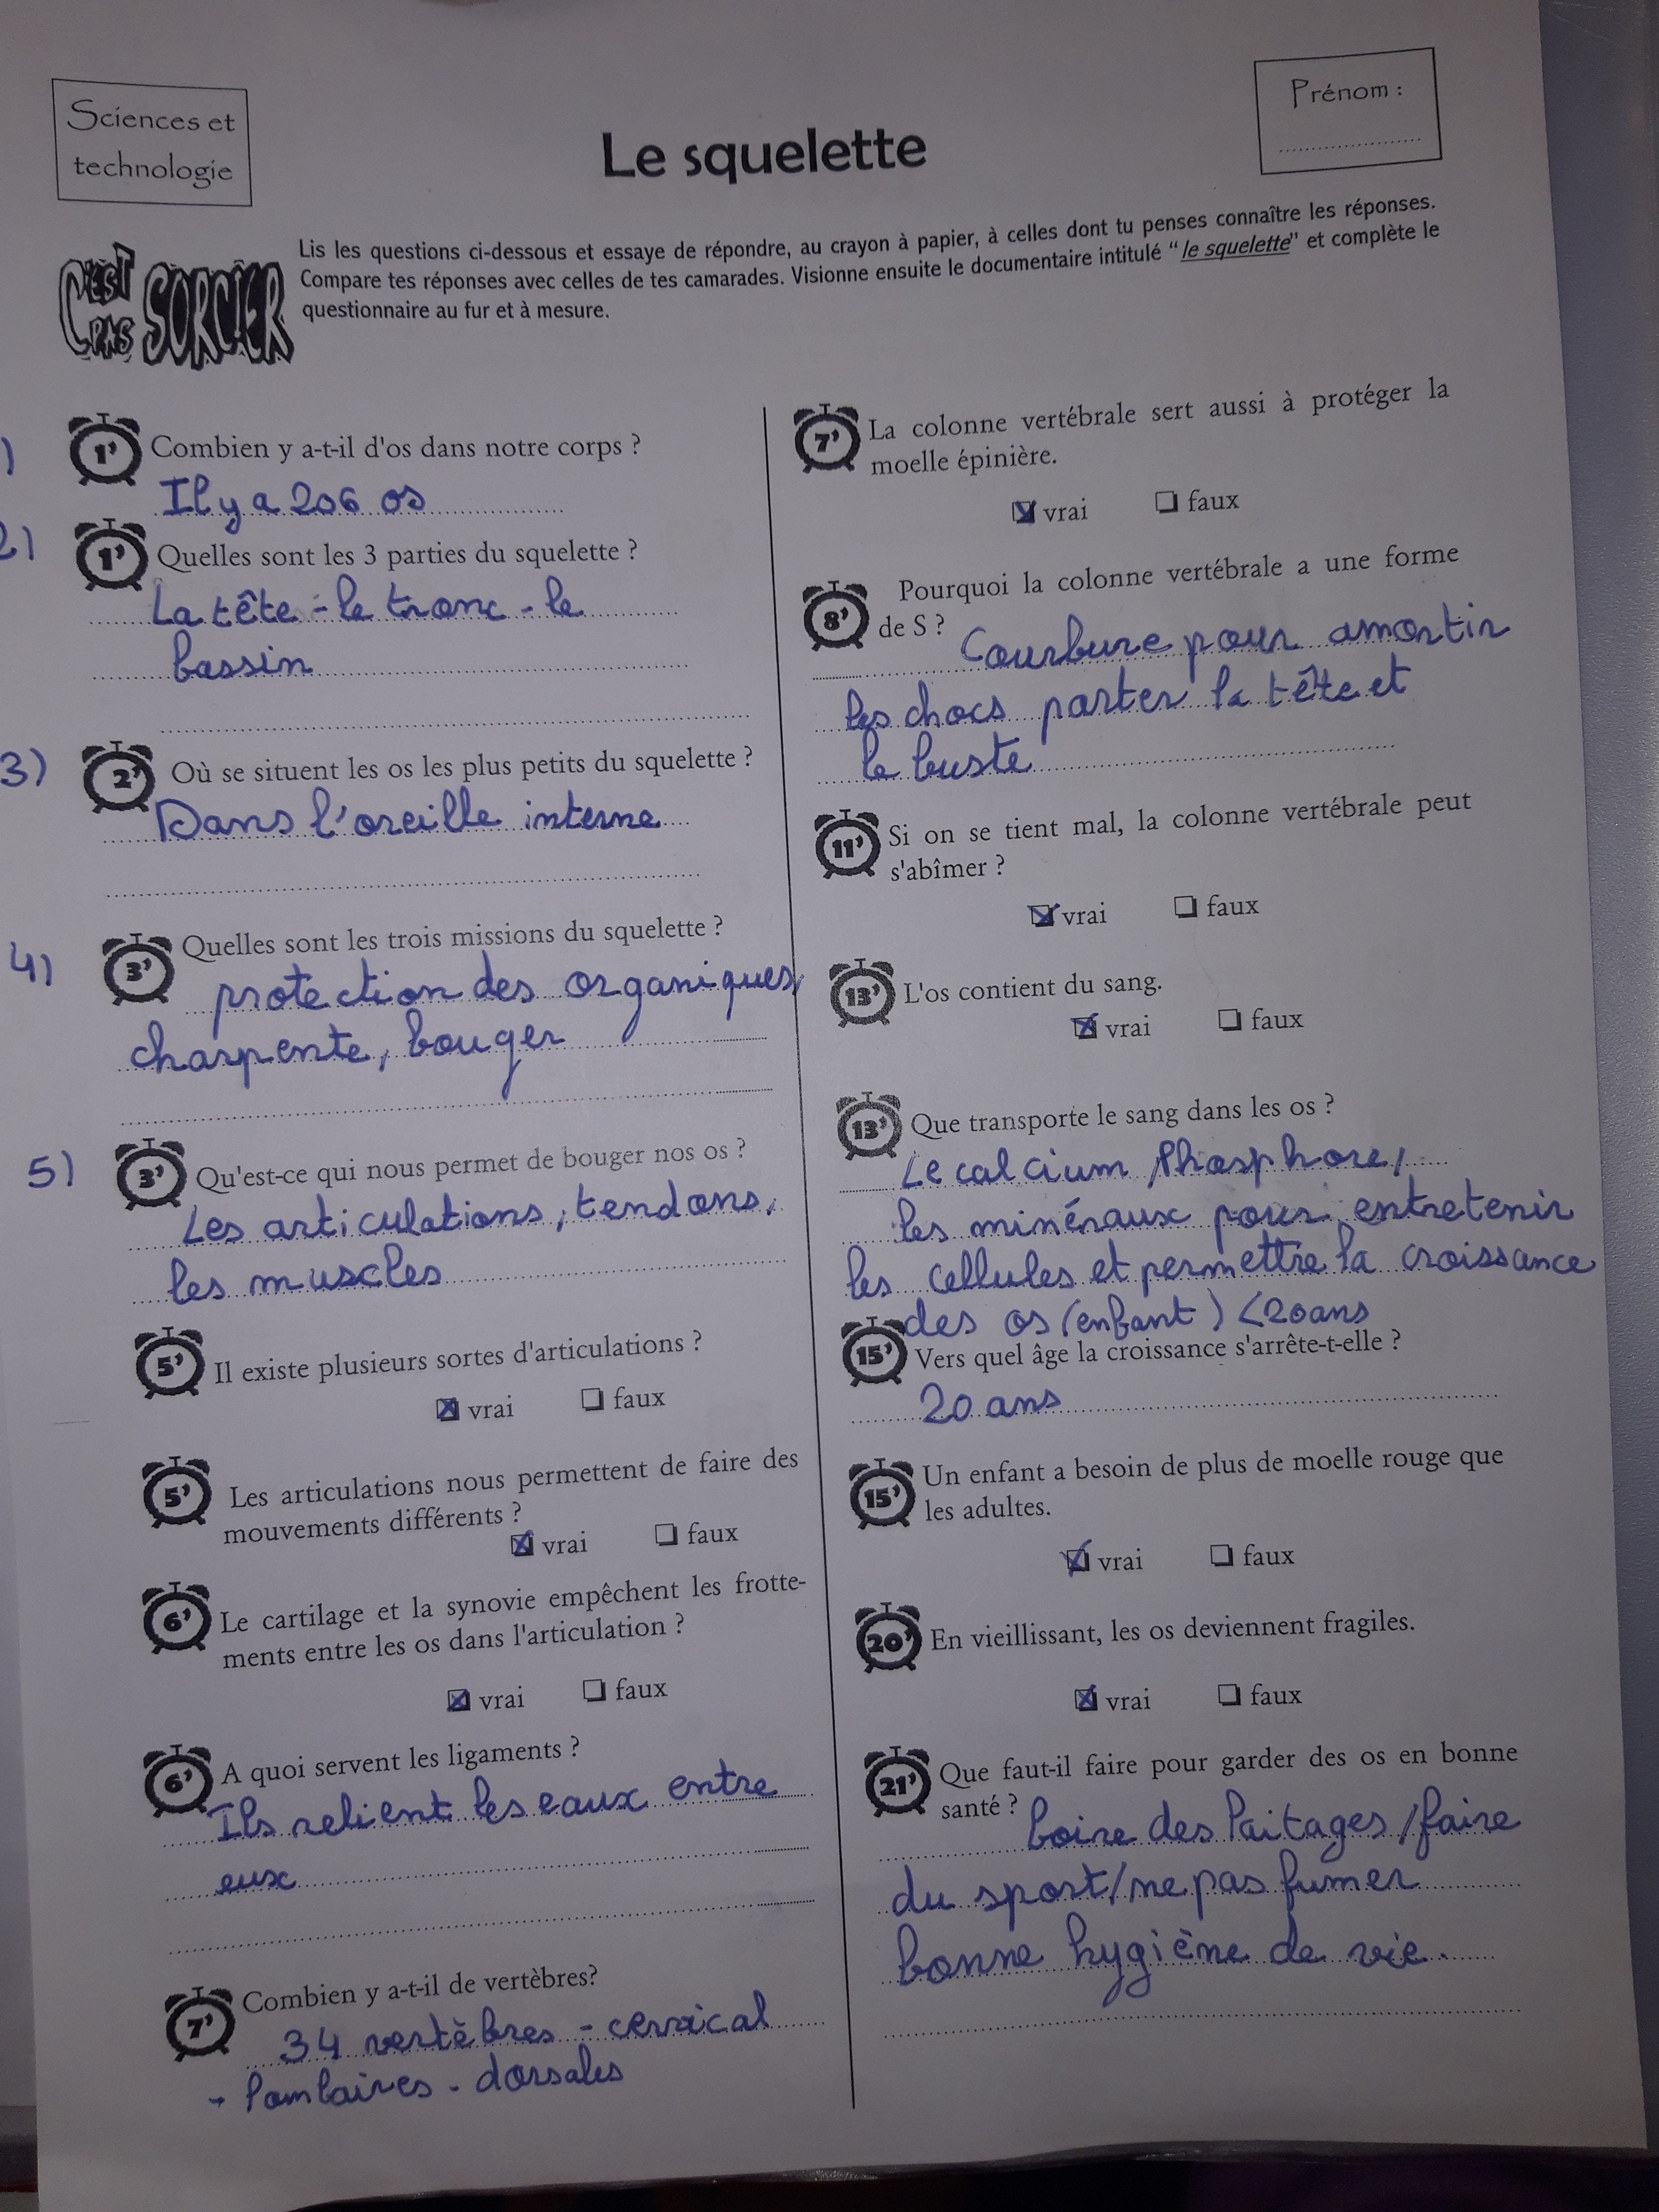 Sciences et
technologie
Le squelette
Prénom :
C'EST PAS SORCIER
Lis les questions ci-dessous et essaye de répondre, au crayon à papier, à celles dont tu penses connaître les réponses.
Compare tes réponses avec celles de tes camarades. Visionne ensuite le documentaire intitulé "le squelette" et complète le
questionnaire au fur et à mesure.
)
1' Combien y a-t-il d'os dans notre corps ?
Il y a 206 os
2)
1' Quelles sont les 3 parties du squelette ?
La tête - le tronc - le
bassin
3)
2' Où se situent les os les plus petits du squelette ?
Dans l'oreille interne
4)
3' Quelles sont les trois missions du squelette ?
protection des organiques,
charpente, bouger
5)
3' Qu'est-ce qui nous permet de bouger nos os ?
Les articulations, tendons,
les muscles
5' Il existe plusieurs sortes d'articulations ?
vrai faux
5' Les articulations nous permettent de faire des
mouvements différents ?
vrai faux
6' Le cartilage et la synovie empêchent les frotte-
ments entre les os dans l'articulation ?
vrai faux
6' A quoi servent les ligaments ?
Ils relient les eaux entre
eux
7' Combien y a-t-il de vertèbres?
34 vertèbres - cervical
- lombaires - dorsales
7' La colonne vertébrale sert aussi à protéger la
moelle épinière.
vrai faux
8' Pourquoi la colonne vertébrale a une forme
de S ?
Courbure pour amortir
les chocs porter la tête et
le buste
11' Si on se tient mal, la colonne vertébrale peut
s'abîmer ?
vrai faux
13' L'os contient du sang.
vrai faux
13' Que transporte le sang dans les os ?
Le calcium, Phosphore,
les minéraux pour entretenir
les cellules et permettre la croissance
des os (enfant) <20ans
15' Vers quel âge la croissance s'arrête-t-elle ?
20 ans
15' Un enfant a besoin de plus de moelle rouge que
les adultes.
vrai faux
20' En vieillissant, les os deviennent fragiles.
vrai faux
21' Que faut-il faire pour garder des os en bonne
santé ?
boire des laitages / faire
du sport / ne pas fumer
bonne hygiène de vie.